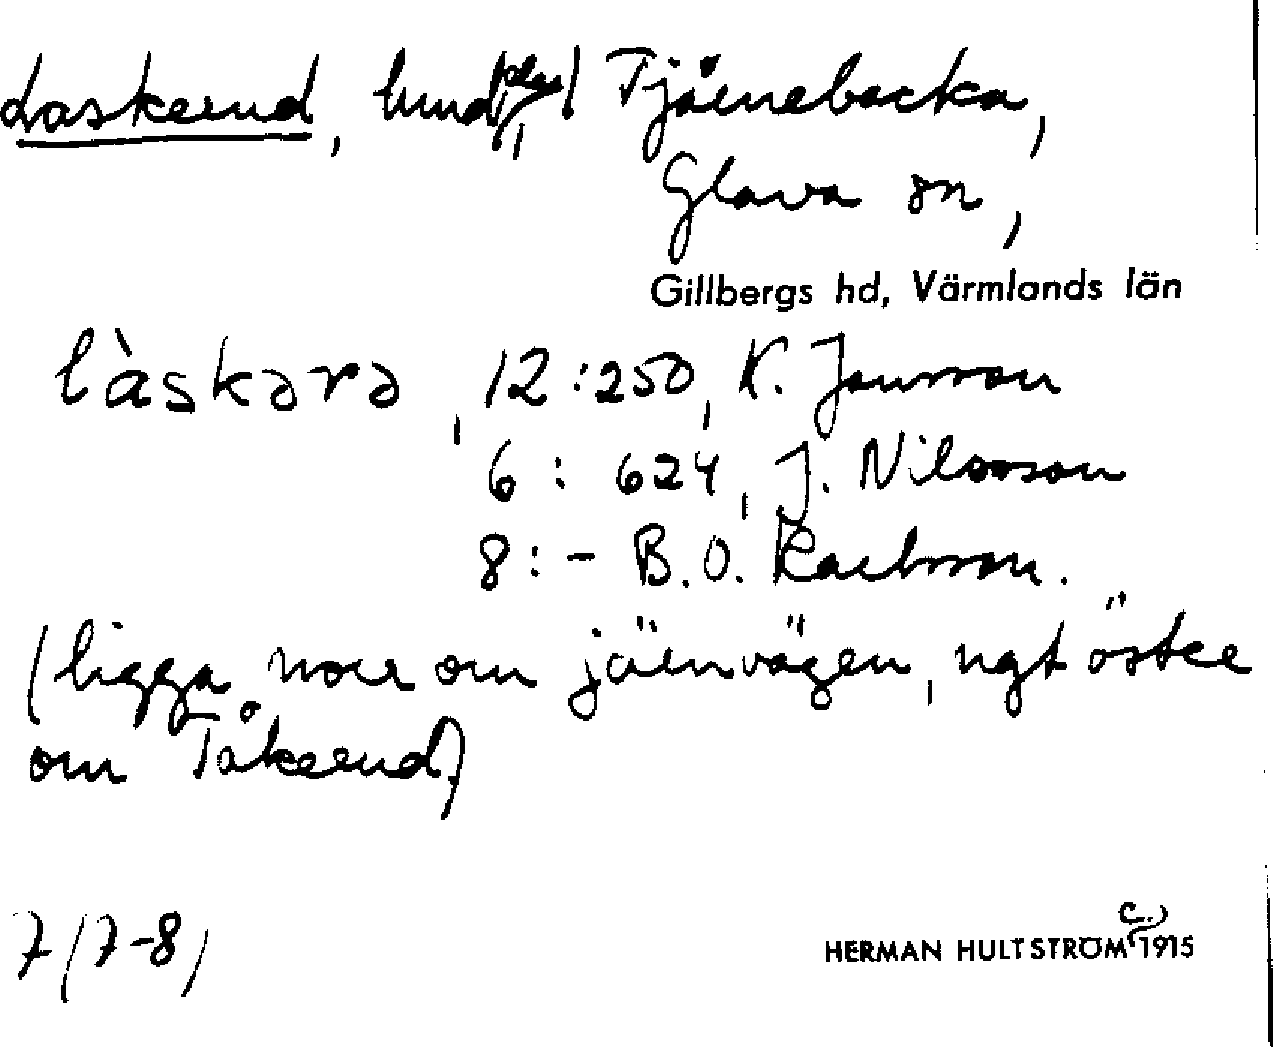 Laskerud, hmd (pl) Tjärnebacka,
Glava sn,
Gillbergs hd, Värmlands län
l̀askərə, 12:250, K. Jonsson
6: 624, J. Nilsson
8: - B.O. Karlsson.
(ligga norr om järnvägen, ngt öster
om Tåkerud)
7/7-8/
HERMAN HULTSTRÖM C. 1915